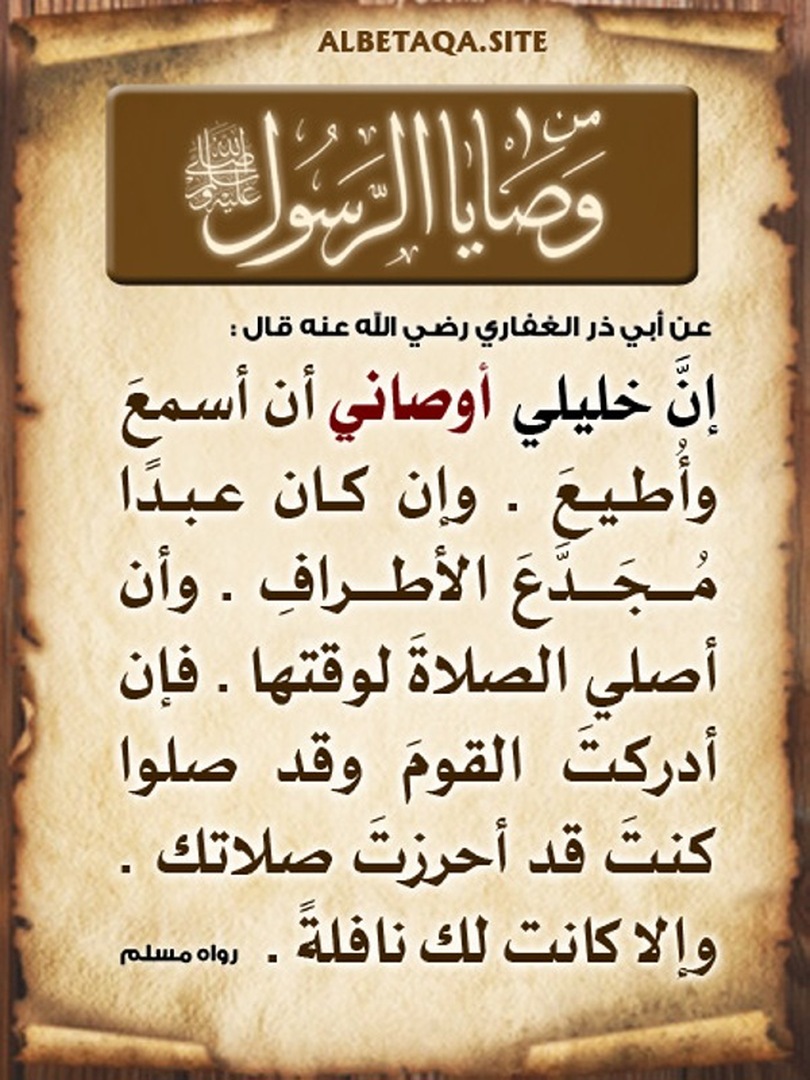 ALBETAQA.SITE
من
وَصَايَا الرَّسُول صلى الله عليه وسلم
عن أبي ذر الغفاري رضي الله عنه قال :
إنَّ خليلي أوصاني أن أسمعَ
وأُطيعَ . وإن كان عبدًا
مُجَدَّعَ الأطرافِ . وأن
أصلي الصلاةَ لوقتها . فإن
أدركتَ القومَ وقد صلوا
كنتَ قد أحرزتَ صلاتك .
وإلا كانت لك نافلةً . رواه مسلم